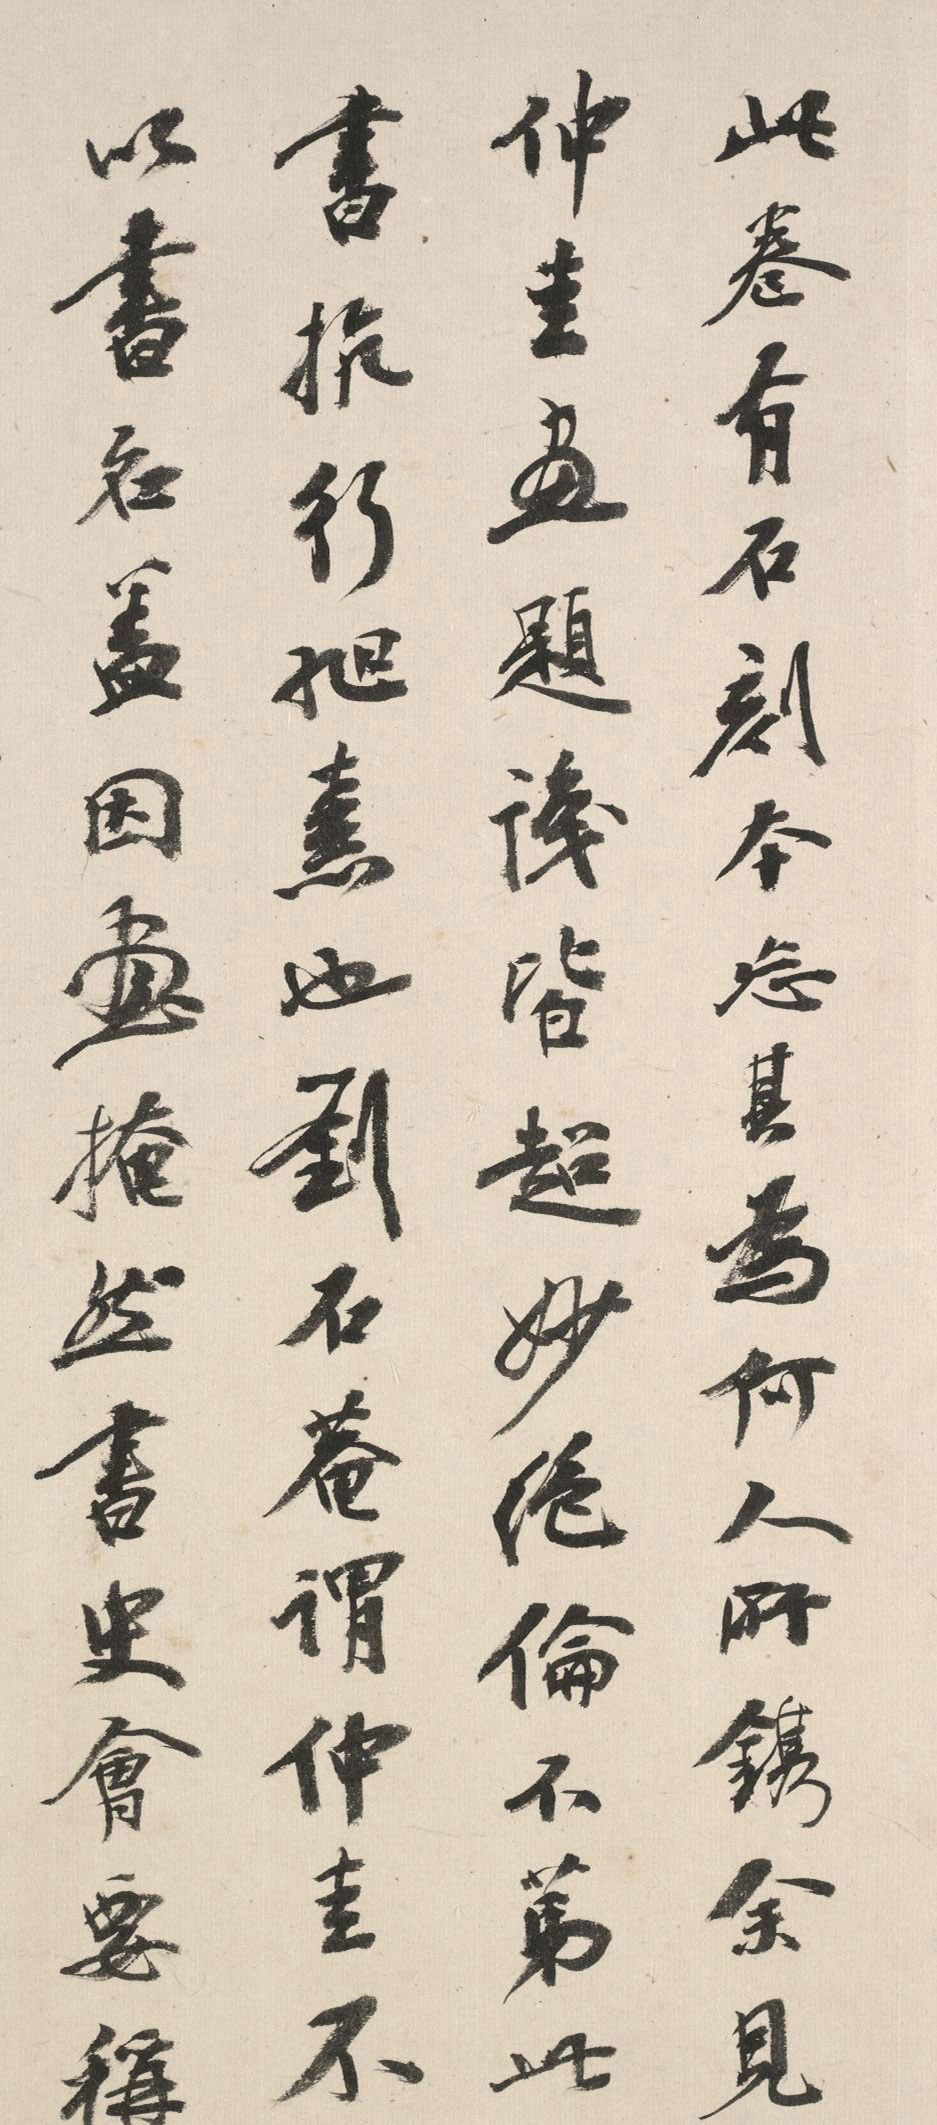 此卷有石刻本忘其為何人所鐫余見
仲圭画題識皆超妙絕倫不第此
書抗行旭素也劉石菴謂仲圭不
以書名蓋因畫掩然書史會要稱